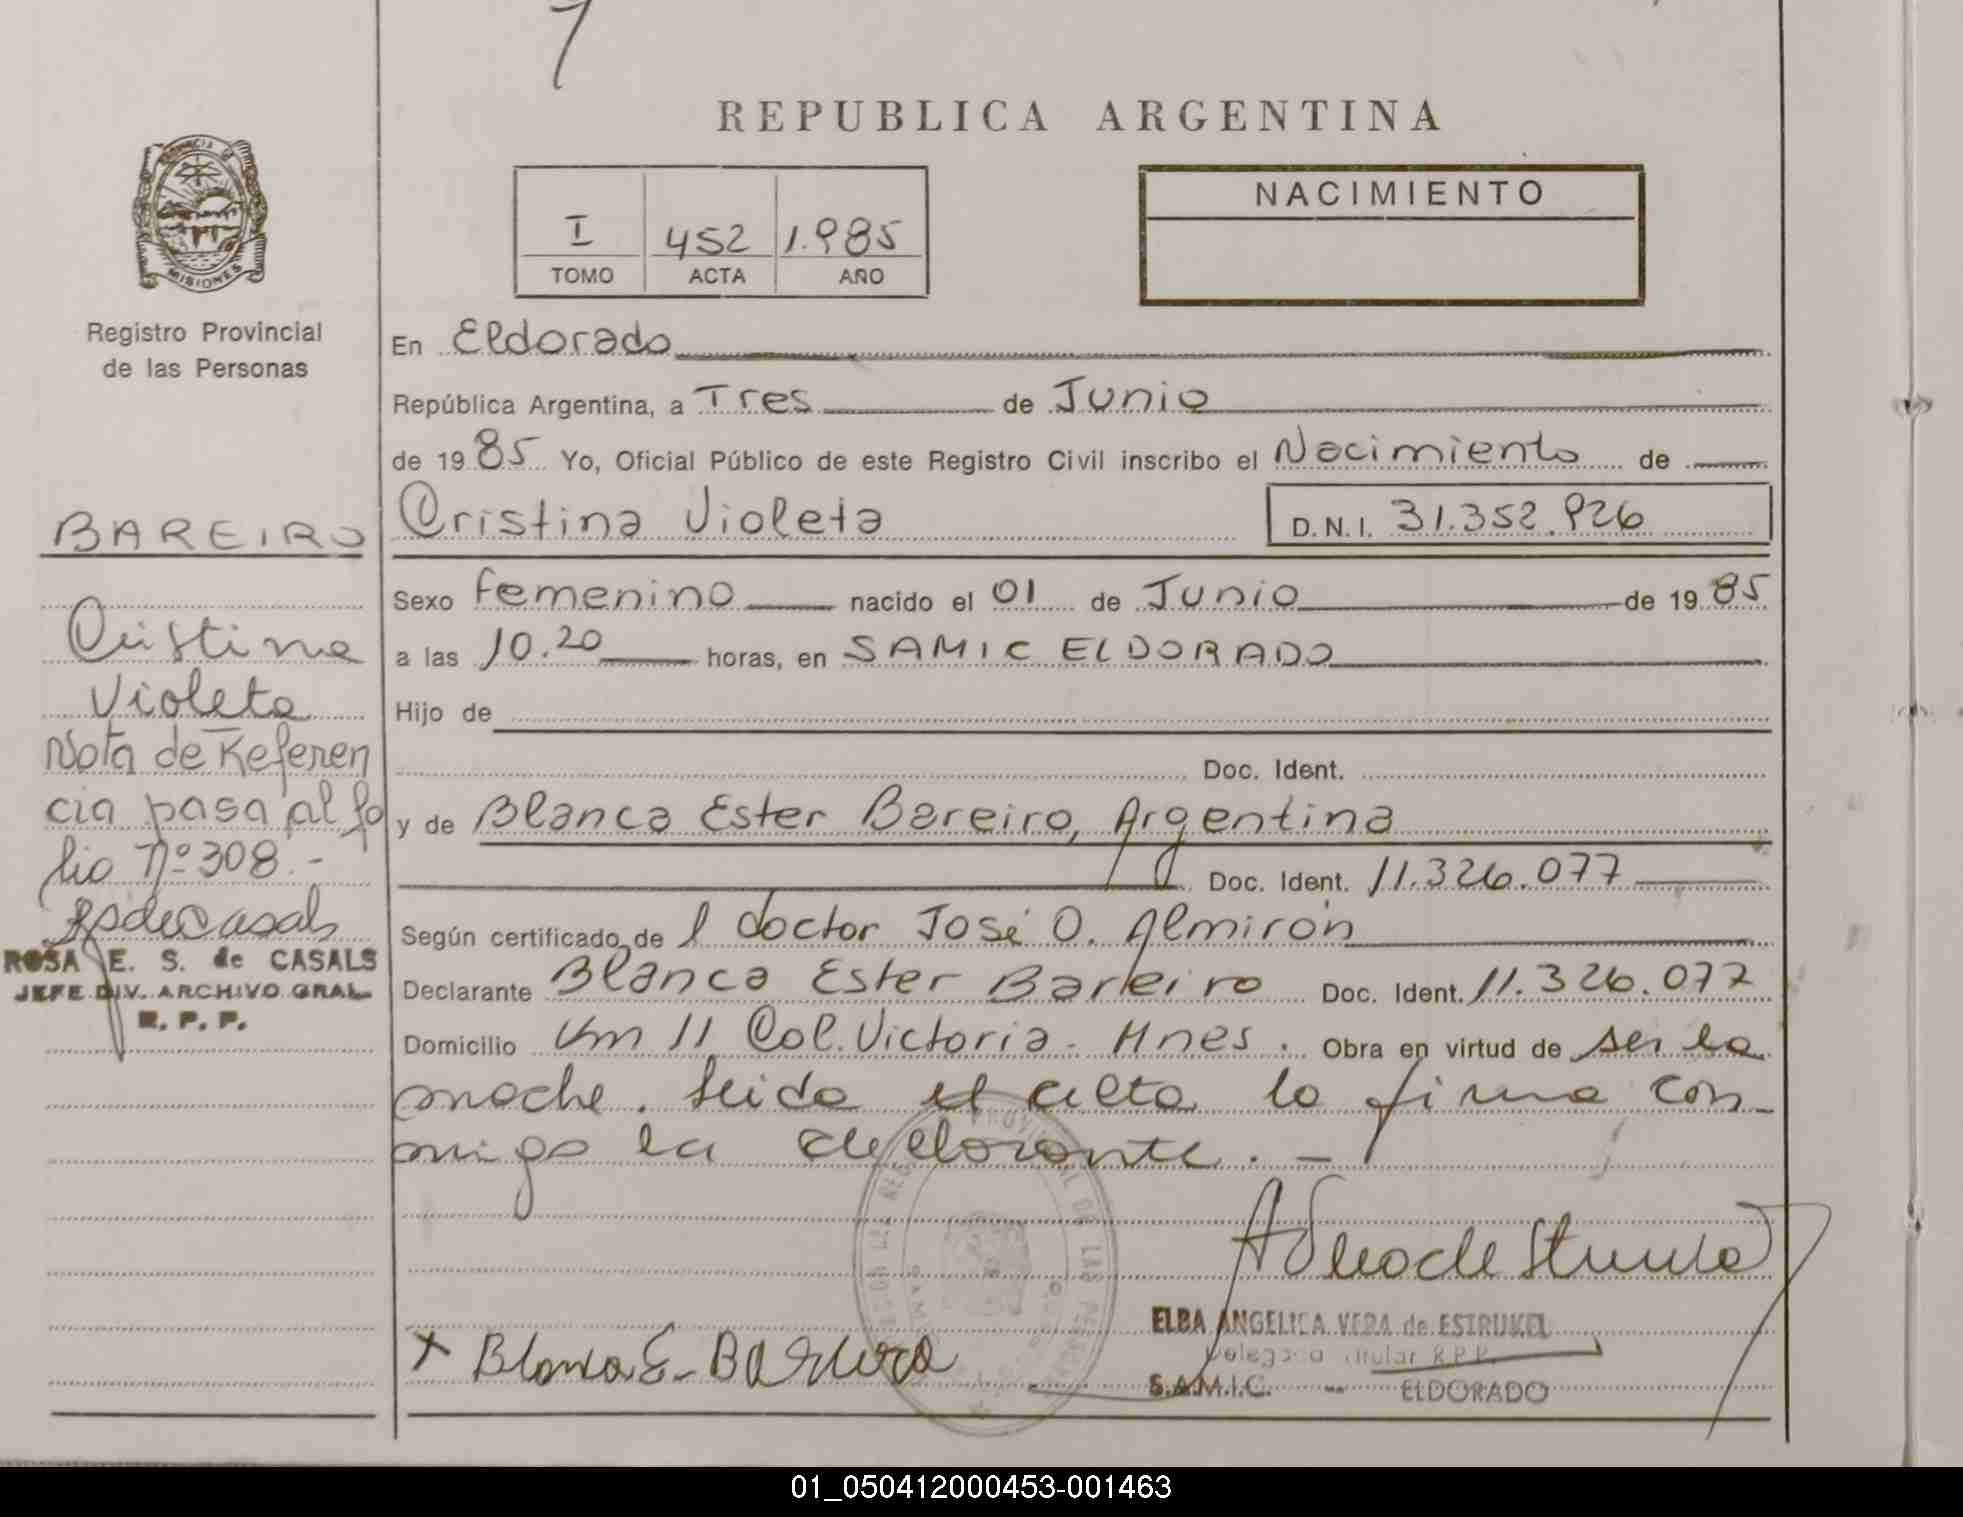 7
REPUBLICA ARGENTINA
PROVINCIA DE
MISIONES
Registro Provincial
de las Personas
I 452 1.985
TOMO ACTA AÑO
NACIMIENTO
En Eldorado
República Argentina, a Tres de Junio
de 1985 Yo, Oficial Público de este Registro Civil inscribo el Nacimiento de
Cristina Violeta D.N.I. 31.352.926
Sexo femenino nacido el 01 de Junio de 1985
a las 10.20 horas, en SAMIC ELDORADO
Hijo de
Doc. Ident.
y de Blanca Ester Bareiro, Argentina
Doc. Ident. 11.326.077
Según certificado de l doctor José O. Almirón
Declarante Blanca Ester Bareiro Doc. Ident. 11.326.077
Domicilio Km 11 Col. Victoria - Mnes. Obra en virtud de ser la
madre. Leida el acta la firma con-
migo la declarante. -
BAREIRO
Cristina
Violeta
Nota de Referen
cia pasa al fo
lio Nº 308.-
ROSA E. S. de CASALS
JEFE DIV. ARCHIVO GRAL.
R. P. P.
ELBA ANGELICA VERA de ESTRUKEL
Delegada Titular R.P.P.
S.A.M.I.C. - ELDORADO
x Blanca E. Bareiro
01_050412000453-001463